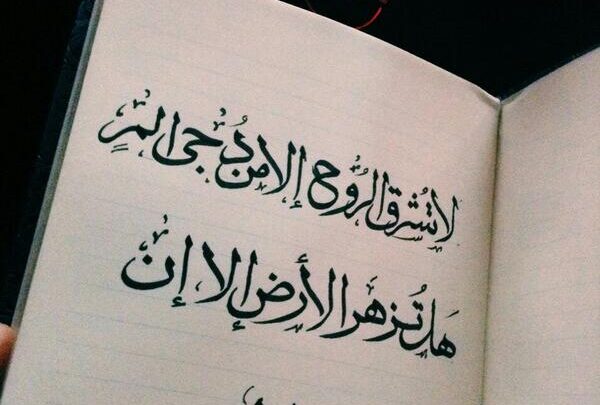 لا تُشرق الرُّوح إلا من دُجى ألمٍ
هَل تُزهر الأرض إلا إن